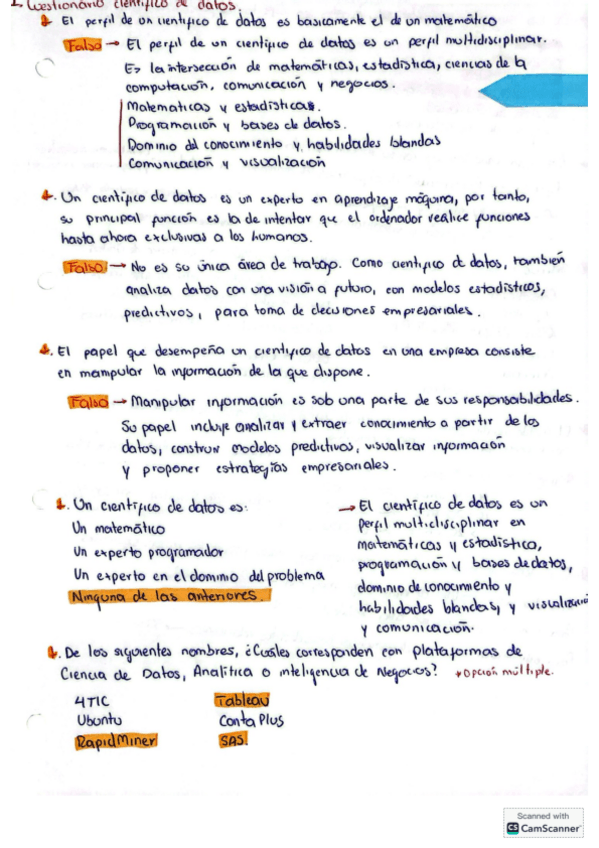 1. Cuestionario científico de datos.
1. El perfil de un científico de datos es basicamente el de un matemático
Falso → El perfil de un científico de datos es un perfil multidisciplinar.
Es la intersección de matemáticas, estadística, ciencias de la
computación, comunicación y negocios.
Matematicas y estadísticas.
Programación y bases de datos.
Dominio del conocimiento y habilidades blandas
Comunicación y visualización
1. Un científico de datos es un experto en aprendizaje máquina, por tanto,
su principal función es la de intentar que el ordenador realice funciones
hasta ahora exclusivas a los humanos.
Falso → No es su única área de trabajo. Como científico de datos, también
analiza datos con una visión a futuro, con modelos estadísticos,
predictivos, para toma de decisiones empresariales.
1. El papel que desempeña un científico de datos en una empresa consiste
en manipular la información de la que dispone.
Falso → Manipular información es sob una parte de sus responsabilidades.
Su papel incluye analizar y extraer conocimiento a partir de los
datos, construir modelos predictivos, visualizar información
y proponer estrategias empresariales.
1. Un científico de datos es:
Un matemático
Un experto programador
Un experto en el dominio del problema
Ninguna de las anteriores.
→ El científico de datos es un
perfil multidisciplinar en
matemáticas y estadística,
programación y bases de datos,
dominio de conocimiento y
habilidades blandas, y visualización
y comunicación.
1. De los siguientes nombres, ¿Cuáles corresponden con plataformas de
Ciencia de Datos, Analítica o inteligencia de Negocios? * Opción múltiple.
4TIC Tableau
Ubuntu Conta Plus
RapidMiner SAS.
Scanned with
CS CamScanner